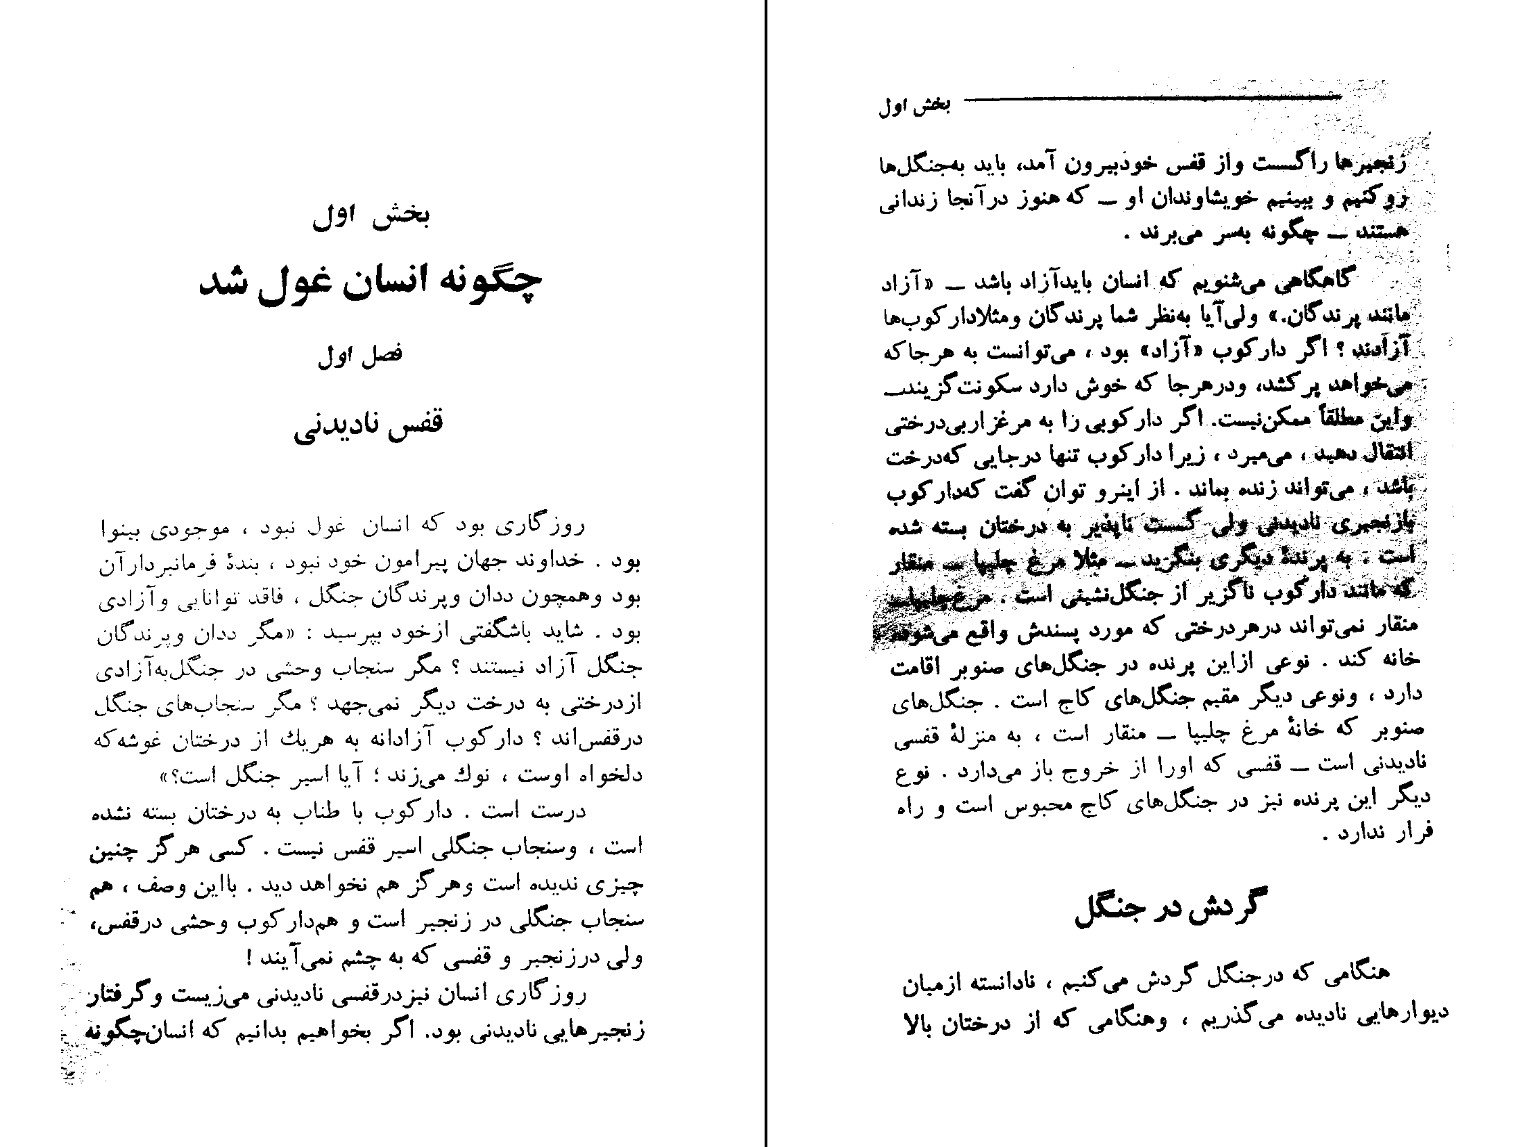 بخش اول
چگونه انسان غول شد
فصل اول
قفس نادیدنی
روزگاری بود که انسان غول نبود ، موجودی بینوا
بود . خداوند جهان پیرامون خود نبود ، بندهٔ فرمانبردارآن
بود وهمچون ددان وپرندگان جنگل ، فاقد توانایی وآزادی
بود . شاید باشگفتی ازخود بپرسید : «مگر ددان وپرندگان
جنگل آزاد نیستند ؟ مگر سنجاب وحشی در جنگل‌به‌آزادی
ازدرختی به درخت دیگر نمی‌جهد ؟ مگر سنجاب‌های جنگل
درقفس‌اند ؟ دارکوب آزادانه به هریك از درختان غوشه‌که
دلخواه اوست ، نوك می‌زند ؛ آیا اسیر جنگل است؟»
درست است . دارکوب با طناب به درختان بسته نشده
است ، وسنجاب جنگلی اسیر قفس نیست . کسی هرگز چنین
چیزی ندیده است وهرگز هم نخواهد دید . بااین وصف ، هم
سنجاب جنگلی در زنجیر است و هم‌دارکوب وحشی درقفس،
ولی درزنجیر و قفسی که به چشم نمی‌آیند !
روزگاری انسان نیزدرقفسی نادیدنی می‌زیست وگرفتار
زنجیرهایی نادیدنی بود. اگر بخواهیم بدانیم که انسان‌چگونه
بخش اول
زنجیرها راگسست واز قفس خودبیرون آمد، باید به‌جنگل‌ها
روکنیم و ببینیم خویشاوندان او ـ که هنوز درآنجا زندانی
هستند ـ چگونه به‌سر می‌برند .
گاهگاهی می‌شنویم که انسان بایدآزاد باشد ـ «آزاد
مانند پرندگان.» ولی‌آیا به‌نظر شما پرندگان ومثلادارکوب‌ها
آزادند ؟ اگر دارکوب «آزاد» بود ، می‌توانست به هرجاکه
می‌خواهد پرکشد، ودرهرجا که خوش دارد سکونت‌گزیند ـ
واین مطلقاً ممکن‌نیست. اگر دارکوبی را به مرغزاربی‌درختی
انتقال دهید ، می‌میرد ، زیرا دارکوب تنها درجایی که‌درخت
باشد ، می‌تواند زنده بماند . از اینرو توان گفت که‌دارکوب
بازنجیری نادیدنی ولی گسست ناپذیر به درختان بسته شده
است . به پرندهٔ دیگری بنگرید ـ مثلا مرغ چلیپا ـ منقار
که مانند دارکوب ناگزیر از جنگل‌نشینی است . مرغ‌چلیپا ـ
منقار نمی‌تواند درهردرختی که مورد پسندش واقع می‌شود،
خانه کند . نوعی ازاین پرنده در جنگل‌های صنوبر اقامت
دارد ، ونوعی دیگر مقیم جنگل‌های کاج است . جنگل‌های
صنوبر که خانهٔ مرغ چلیپا ـ منقار است ، به منزلهٔ قفسی
نادیدنی است ـ قفسی که اورا از خروج باز می‌دارد . نوع
دیگر این پرنده نیز در جنگل‌های کاج محبوس است و راه
فرار ندارد .
گردش در جنگل
هنگامی که درجنگل گردش می‌کنیم ، نادانسته ازمیان
دیوارهایی نادیده می‌گذریم ، وهنگامی که از درختان بالا